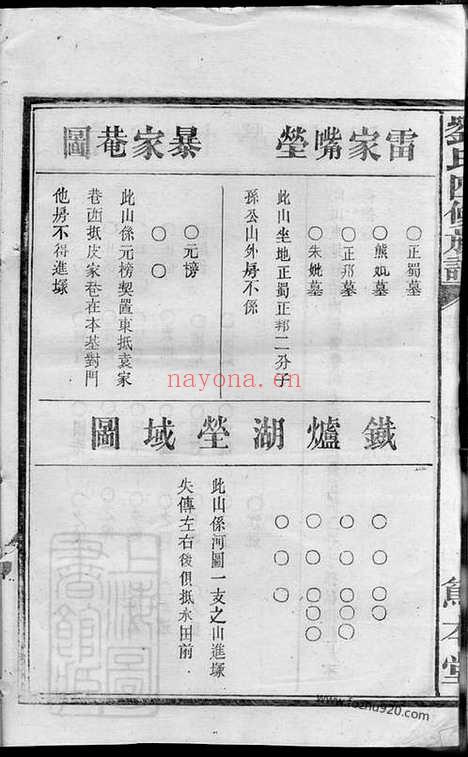 劉氏四修族譜
雷家嘴塋
○正蜀墓
○熊妣墓
○正邦墓
○朱妣墓
此山坐地正蜀正邦二分子
孫公山外房不係
暴家菴圖
○元榜
○○
此山係元榜契置東抵袁家
巷西抵皮家巷在本基對門
他房不得進塚
鐵爐湖塋域圖
○○○
○○○○
○○○○
○○○
此山係河圖一支之山進塚
失傳左右後俱抵永田前
堂
nayona.cn
www.fozhu920.com
上海圖書館藏